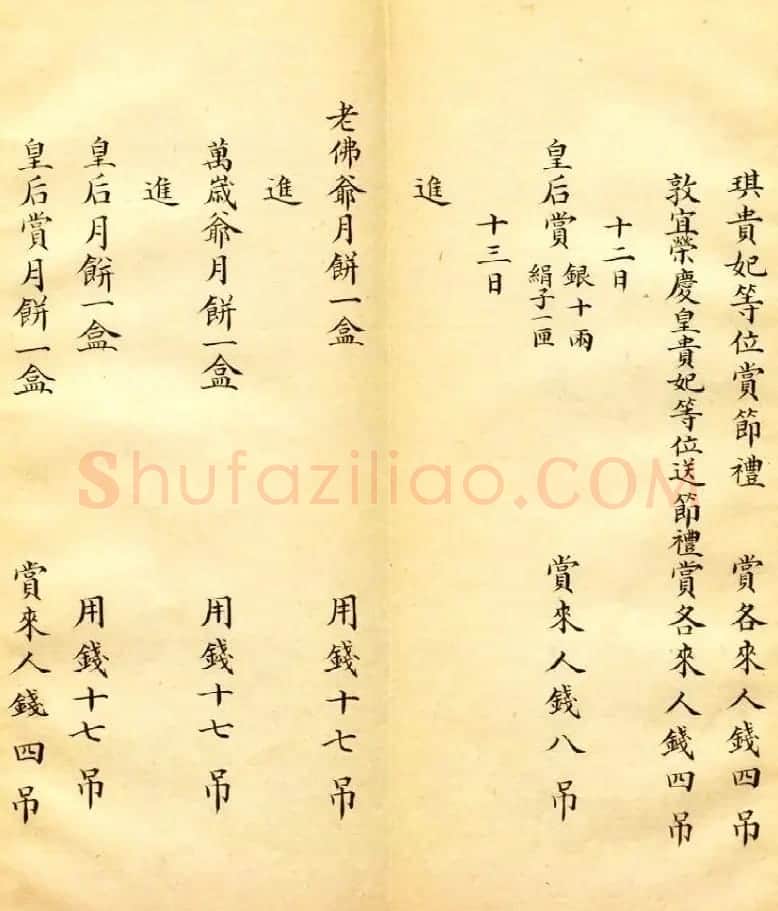 琪貴妃等位賞節禮 賞各來人錢四吊
敦宜榮慶皇貴妃等位送節禮賞各來人錢四吊
十二日
皇后賞 銀十兩 絹子一匣 賞來人錢八吊
十三日
進
老佛爺月餅一盒 用錢十七吊
進
萬歲爺月餅一盒 用錢十七吊
進
皇后月餅一盒 用錢十七吊
皇后賞月餅一盒 賞來人錢四吊
Shufaziliao.COM